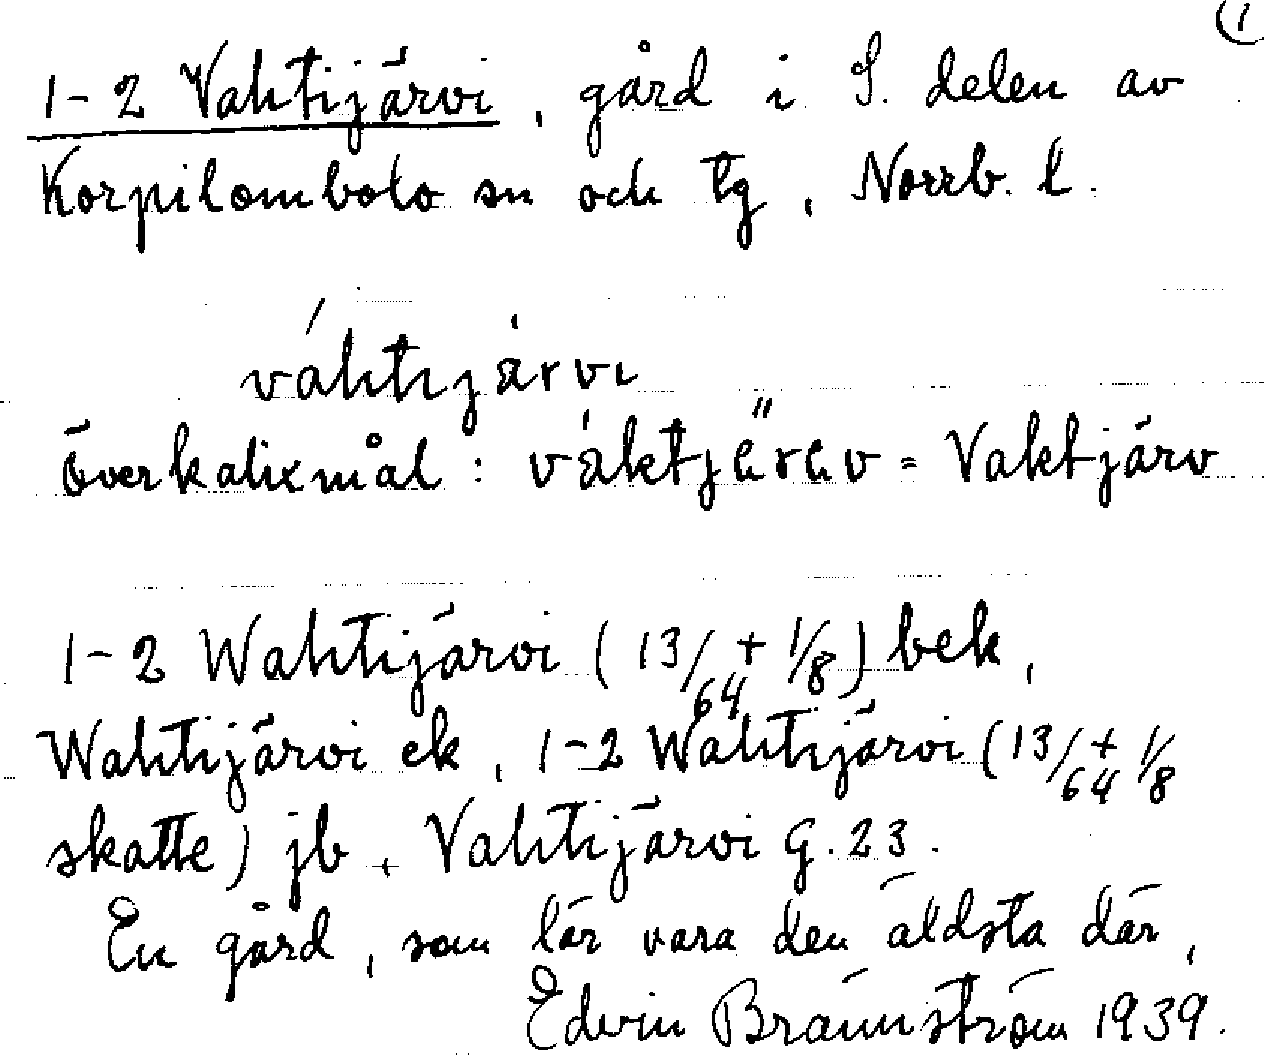 ①
1-2 Vahtijärvi, gård i S. delen av
Korpilombolo sn och tg, Norrb. l.
váhtıjàrvı
överkalixmål: vàktjä̀räv = Vaktjärv
1-2 Wahtijärvi (13/64 + 1/8) bek,
Wahtijärvi ek, 1-2 Wahtijärvi (13/64 + 1/8
skatte) jb, Vahtijärvi G. 23.
En gård, som lär vara den äldsta där,
Edvin Brännström 1939.